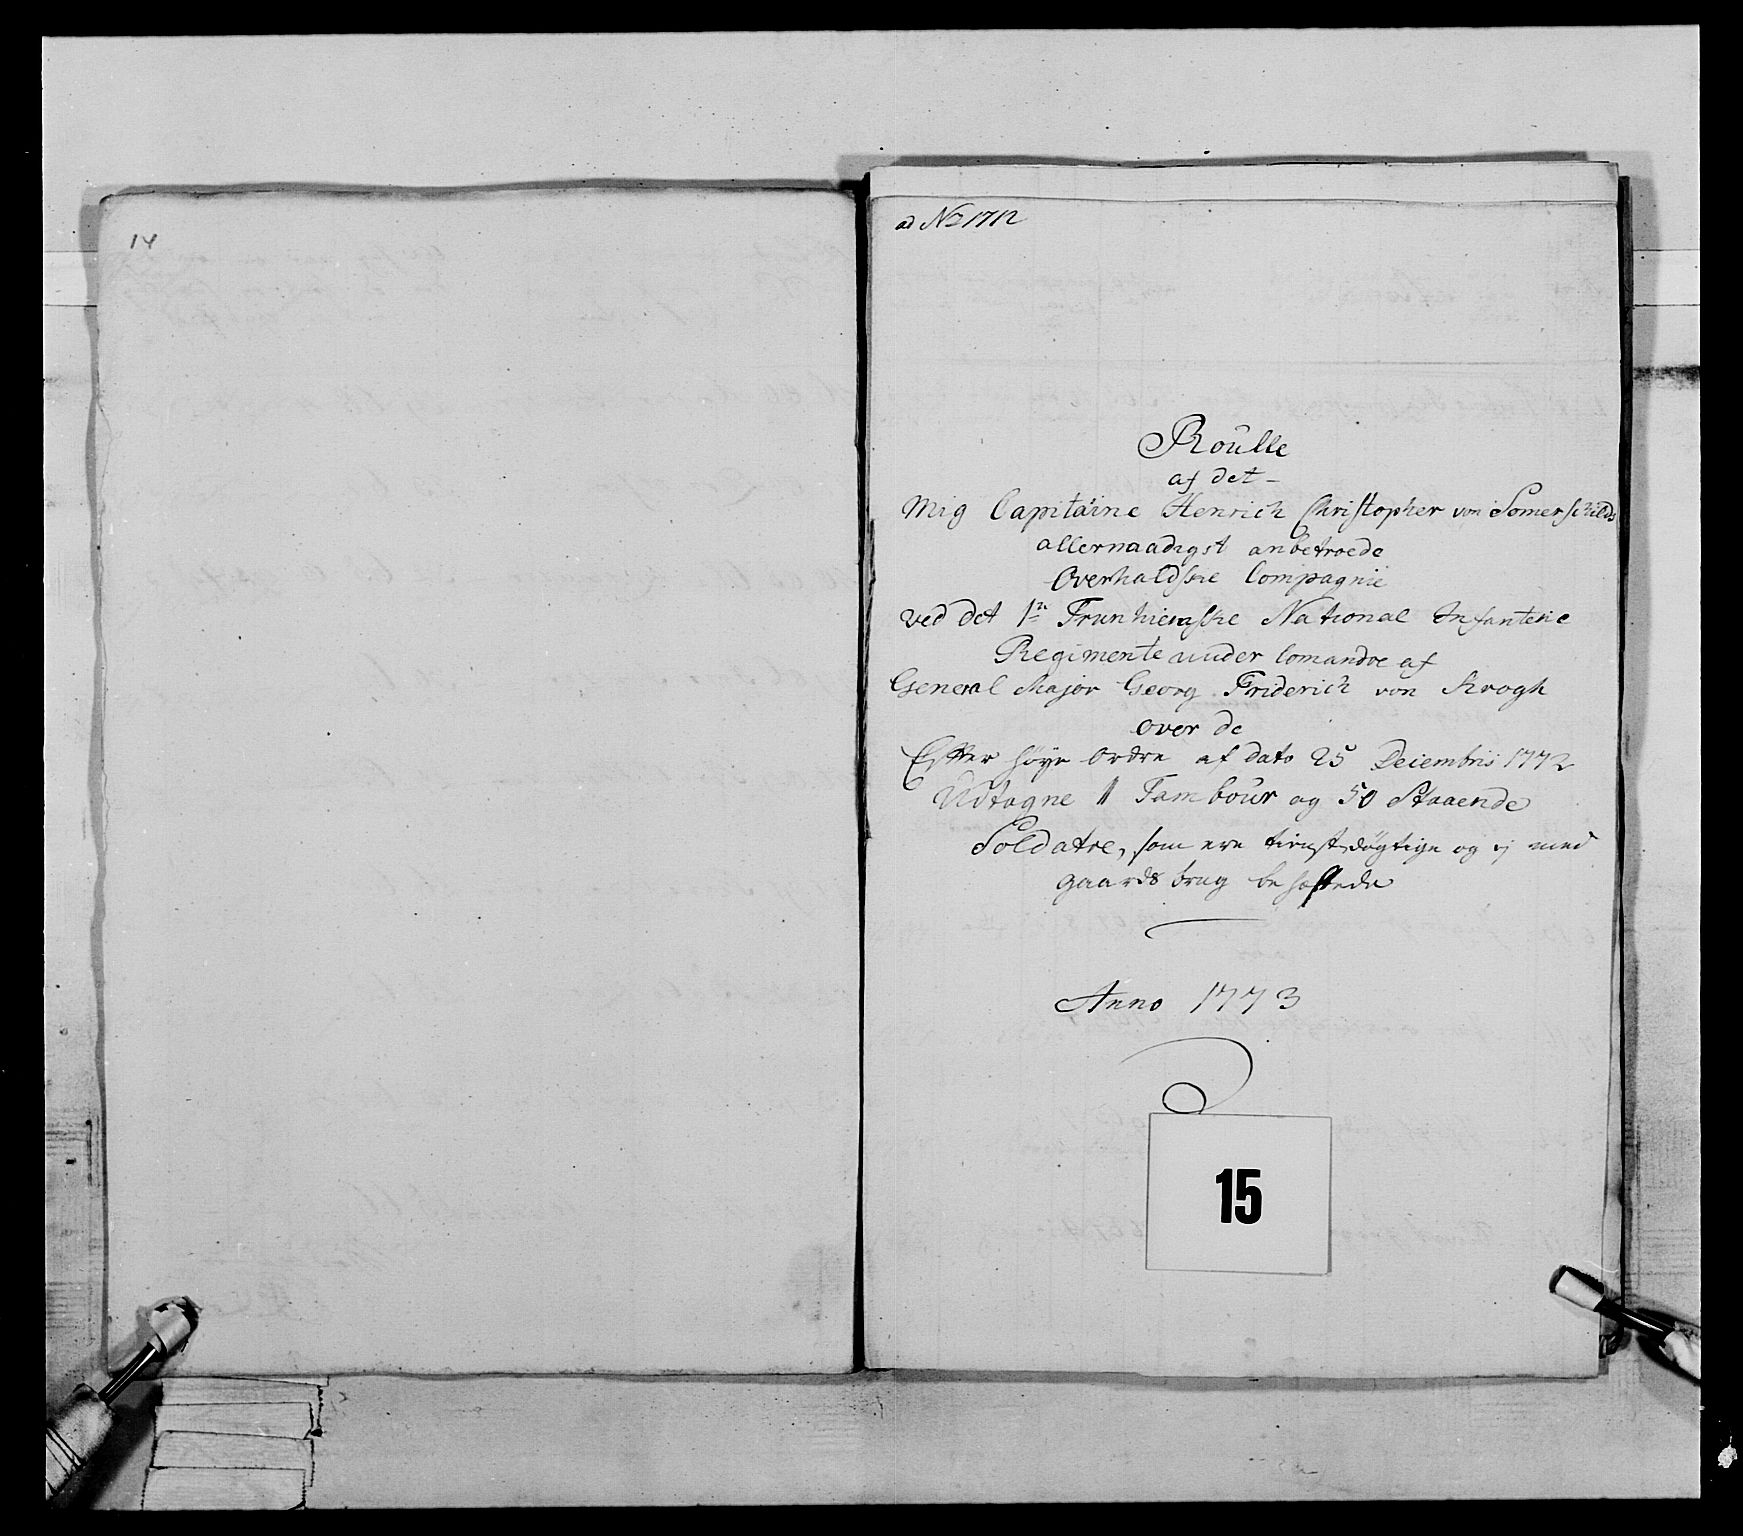 14
ad No 1712
Roulle
af det -
Mig Capitaine Henrich Christopher von Somerschild
allernaadigst anbetroede
Overhaldske Compagnie
ved det 1te Trunhiemske National Infanterie
Regimente under Comandoe af
General Major Georg Friderich von Krogh
over de
Efter høye Ordre af dato 25 Decembris 1772
Udtagne 1 Tambour og 50 Staaende
Soldatre, som ere tienstdøgtige og ej med
gaards brug behæftede
Anno 1773
15